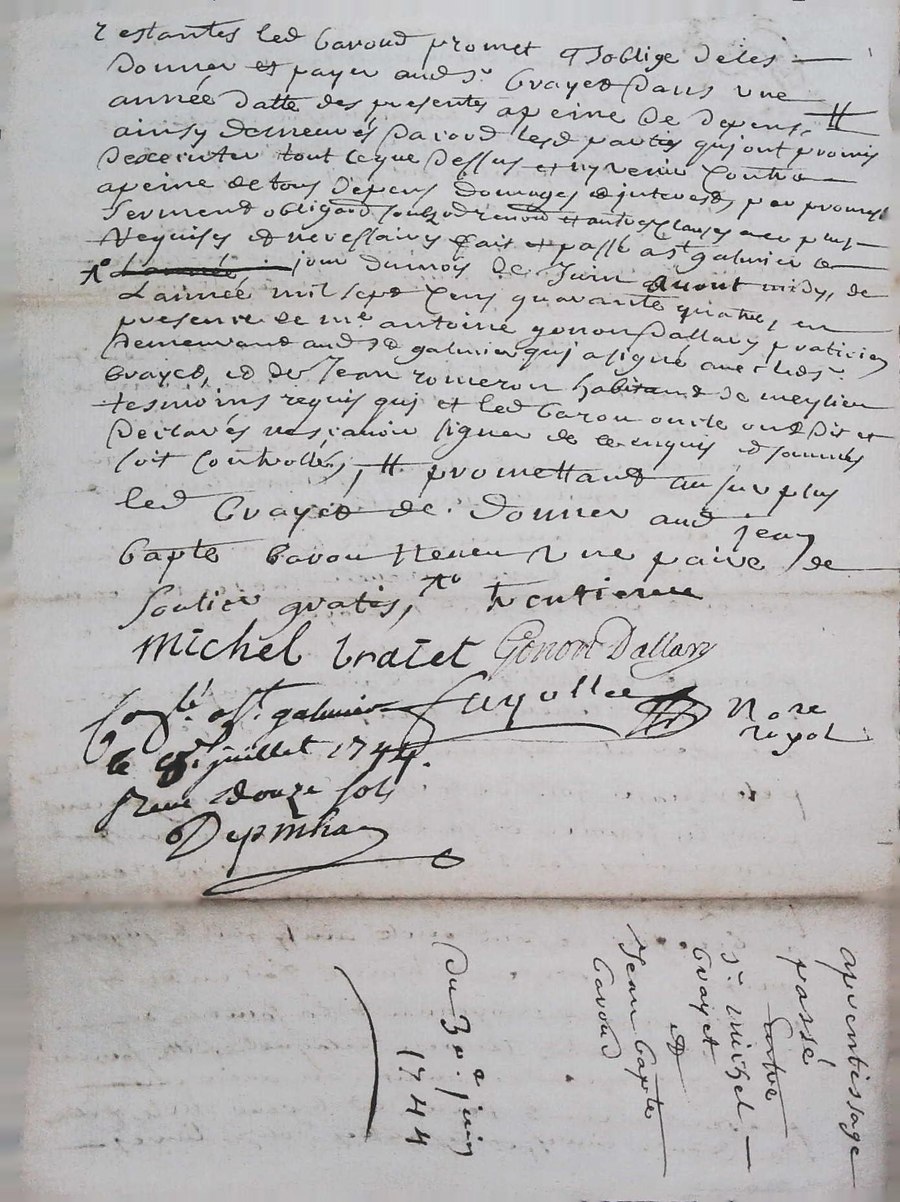 restantes led baroud promet & soblige de les
donner et payer aud sr brayet dans une
année datte des presentes apeine de depens, #
ainsy demeurés dacord lesd partis qui ont promis
dexecuter tout ce que dessus et ny venir contre
apeine de tous depens domages & interests par promesse
serment obligaõn soubz renõn et autres clauses avec plus
requises et necessaires fait et passé a st galmier ce
jour du mois de Juin avant midy, de
Lannée mil sept cens quarante quatre, en
presence de me antoine gonon Dallary praticien
demeurand aud st galmier qui a signé avec led sr
brayet, et de Jean romeron habitand de meylieu
tesmoins requis qui et led barou ont dit et
declarés ne scavoir signer de ce enquis et sommés
soit controllé, # promettand au surplus
led brayet de donner aud Jean
bapte barou neveu une paire de
soulier gratis, xo trentieme
Michel braiet Gonon Dallary
Conlé a st galmier fayolle Nore royal
le 8e juillet 1744.
Receu douze sols
apentissage
passé
entre
sr michel
brayet
et
Jean bapte
baroud
Du 30e juin
1744